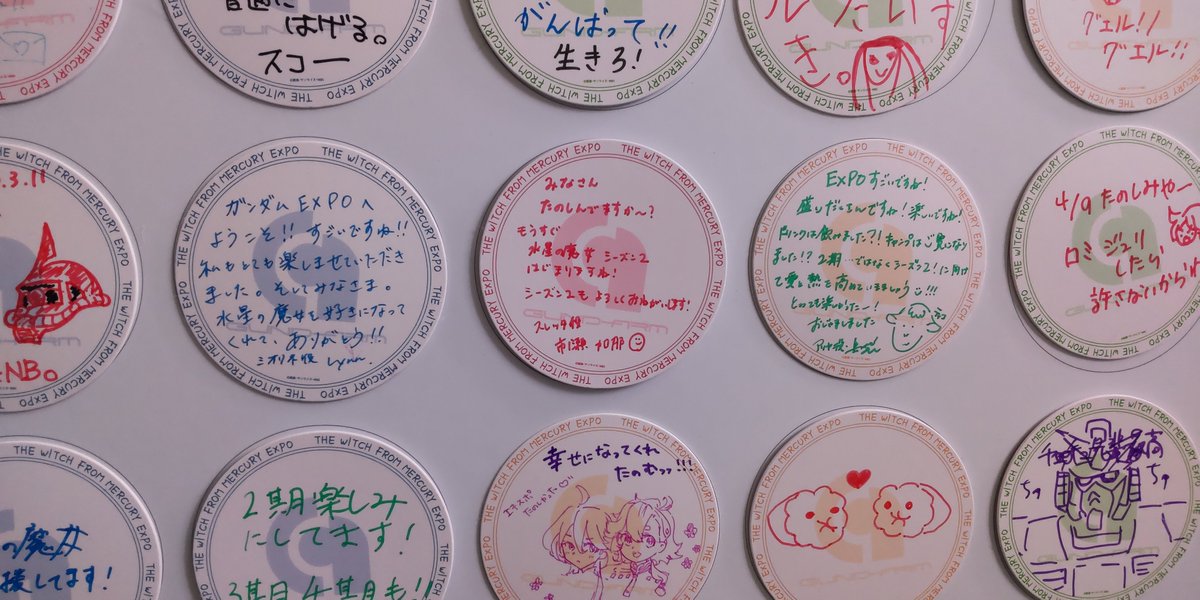 はげる。
スコー
THE WITCH FROM MERCURY EXPO
がんばって!!
生きろ!
THE WITCH FROM MERCURY EXPO
ルたいす
き。
グエル!!
グエル!!
THE WITCH FROM MERCURY EXPO
3.11
NB。
THE WITCH FROM MERCURY EXPO
ガンダムEXPOへ
ようこそ!!すごいですね!!
私もとても楽しませていただき
ました。そしてみなさま。
水星の魔女を好きになって
くれて、ありがとう!!
ミオリネ役 Lynn.
THE WITCH FROM MERCURY EXPO
みなさん
たのしんでますか〜?
もうすぐ
水星の魔女 シーズン2
はじまりますね!
シーズン2もよろしくおねがいします!
スレッタ役
市ノ瀬加那
GUND-ARM
THE WITCH FROM MERCURY EXPO
EXPOすごいですね!
盛りだくさんですね!楽しいですね!
ドリンクは飲みました?!キャンプはご覧になり
ました!?2期…ではなくシーズン2!に向け
て愛と熱を高めていきましょう!!!
THE WITCH FROM MERCURY EXPO
4/9たのしみやー
ロミジュリ
したら
許さないから
THE WITCH FROM MERCURY EXPO
の魔女
援してます!
THE WITCH FROM MERCURY EXPO
2期楽しみ
にしてます!
3期目4期目も!!
THE WITCH FROM MERCURY EXPO
幸せになってくれ
たのむっっ!!!
THE WITCH FROM MERCURY EXPO
THE WITCH FROM MERCURY EXPO